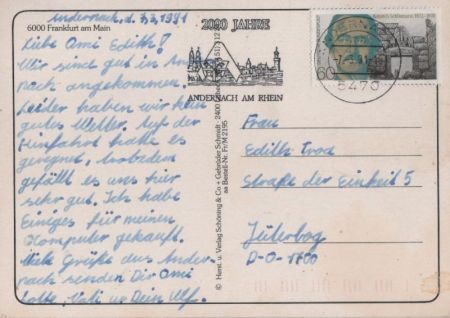 Andernach, d. 7.7.1991
6000 Frankfurt am Main
Liebe Omi Edith!
Wir sind gut in Ander
nach angekommen.
Leider haben wir kein
gutes Wetter. Auf der
Hinfahrt hatte es
geregnet. Trotzdem
gefällt es uns hier
sehr gut. Ich habe
Einiges für meinen
Komputer gekauft.
Viele Grüße aus Ander-
nach senden Dir Omi
Lotte, Vati u. Dein Ulf.
© Herst. u. Verlag Schöning & Co + Gebrüder Schmidt · 2400
aa Bestell-Nr. Fr/M 2195
2000 JAHRE
ANDERNACH AM RHEIN
60
Heinrich Schliemann 1822-1890
5470
Frau
Edith
Straße der Einheit 5
Jüterbog
D-O-1700